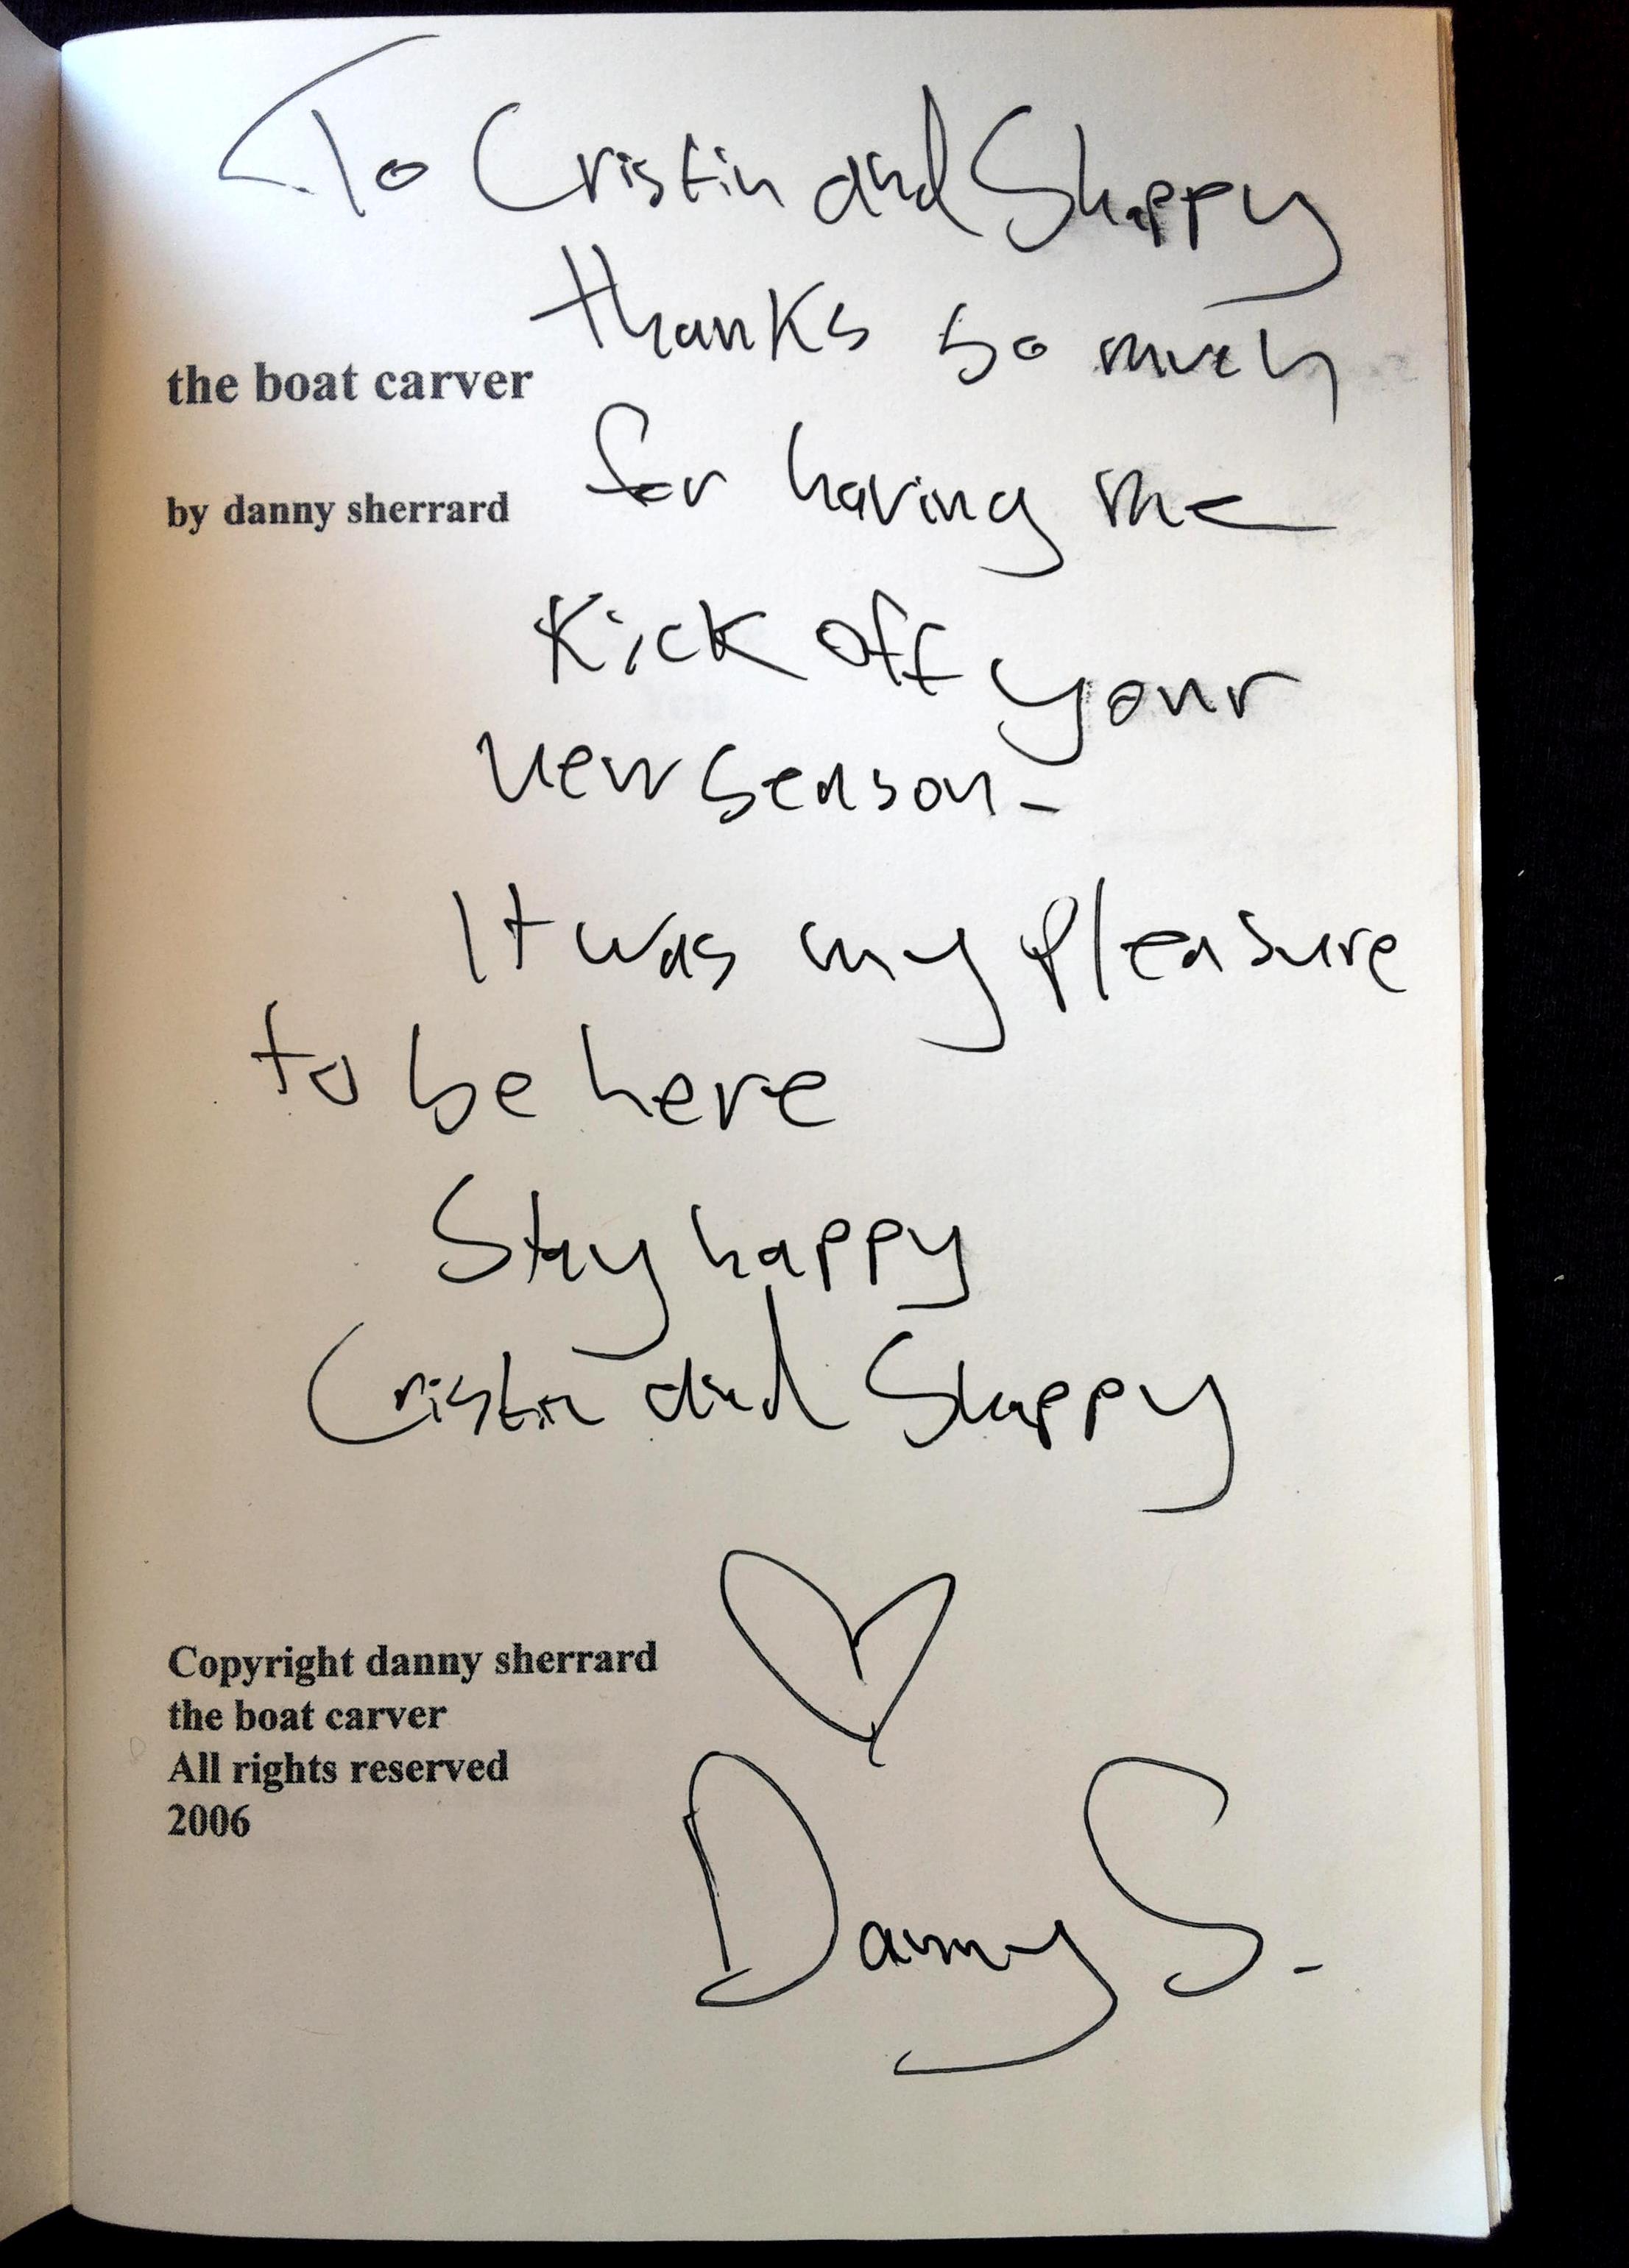 To Cristin and Shappy
thanks so much
the boat carver
for having me
by danny sherrard
Kick off your
new season-
It was my pleasure
to be here
Stay happy
Cristin and Shappy
Copyright danny sherrard
the boat carver
All rights reserved
2006
Danny S.